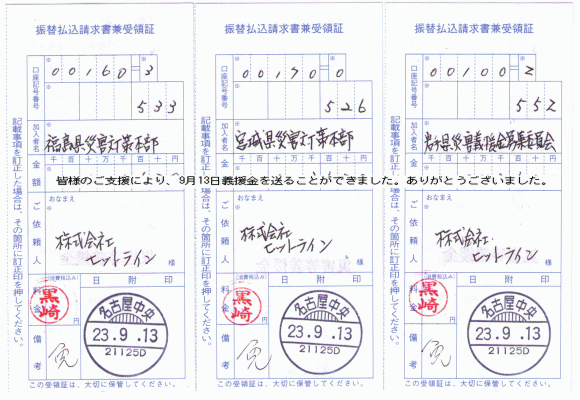 振替払込請求書兼受領証
口座記号番号
00160=3
533
加入者名
福島県災害対策本部
金額
千百十万千百十円
おなまえ
ご依頼人
株式会社
ヒットライン
様
(消費税込み)
料金
円
日附印
黒崎
名古屋中央
23.9.13
21125D
備考
免
この受領証は、大切に保管してください。
記載事項を訂正した場合は、その箇所に訂正印を押してください。
振替払込請求書兼受領証
口座記号番号
00170=0
526
加入者名
宮城県災害対策本部
金額
千百十万千百十円
おなまえ
ご依頼人
株式会社
ヒットライン
様
(消費税込み)
料金
円
日附印
黒崎
名古屋中央
23.9.13
21125D
備考
免
この受領証は、大切に保管してください。
記載事項を訂正した場合は、その箇所に訂正印を押してください。
振替払込請求書兼受領証
口座記号番号
00100=2
552
加入者名
岩手県災害義援金募集委員会
金額
千百十万千百十円
おなまえ
ご依頼人
株式会社
ヒットライン
様
(消費税込み)
料金
円
日附印
黒崎
名古屋中央
23.9.13
21125D
備考
免
この受領証は、大切に保管してください。
記載事項を訂正した場合は、その箇所に訂正印を押してください。
皆様のご支援により、9月13日義援金を送ることができました。ありがとうございました。